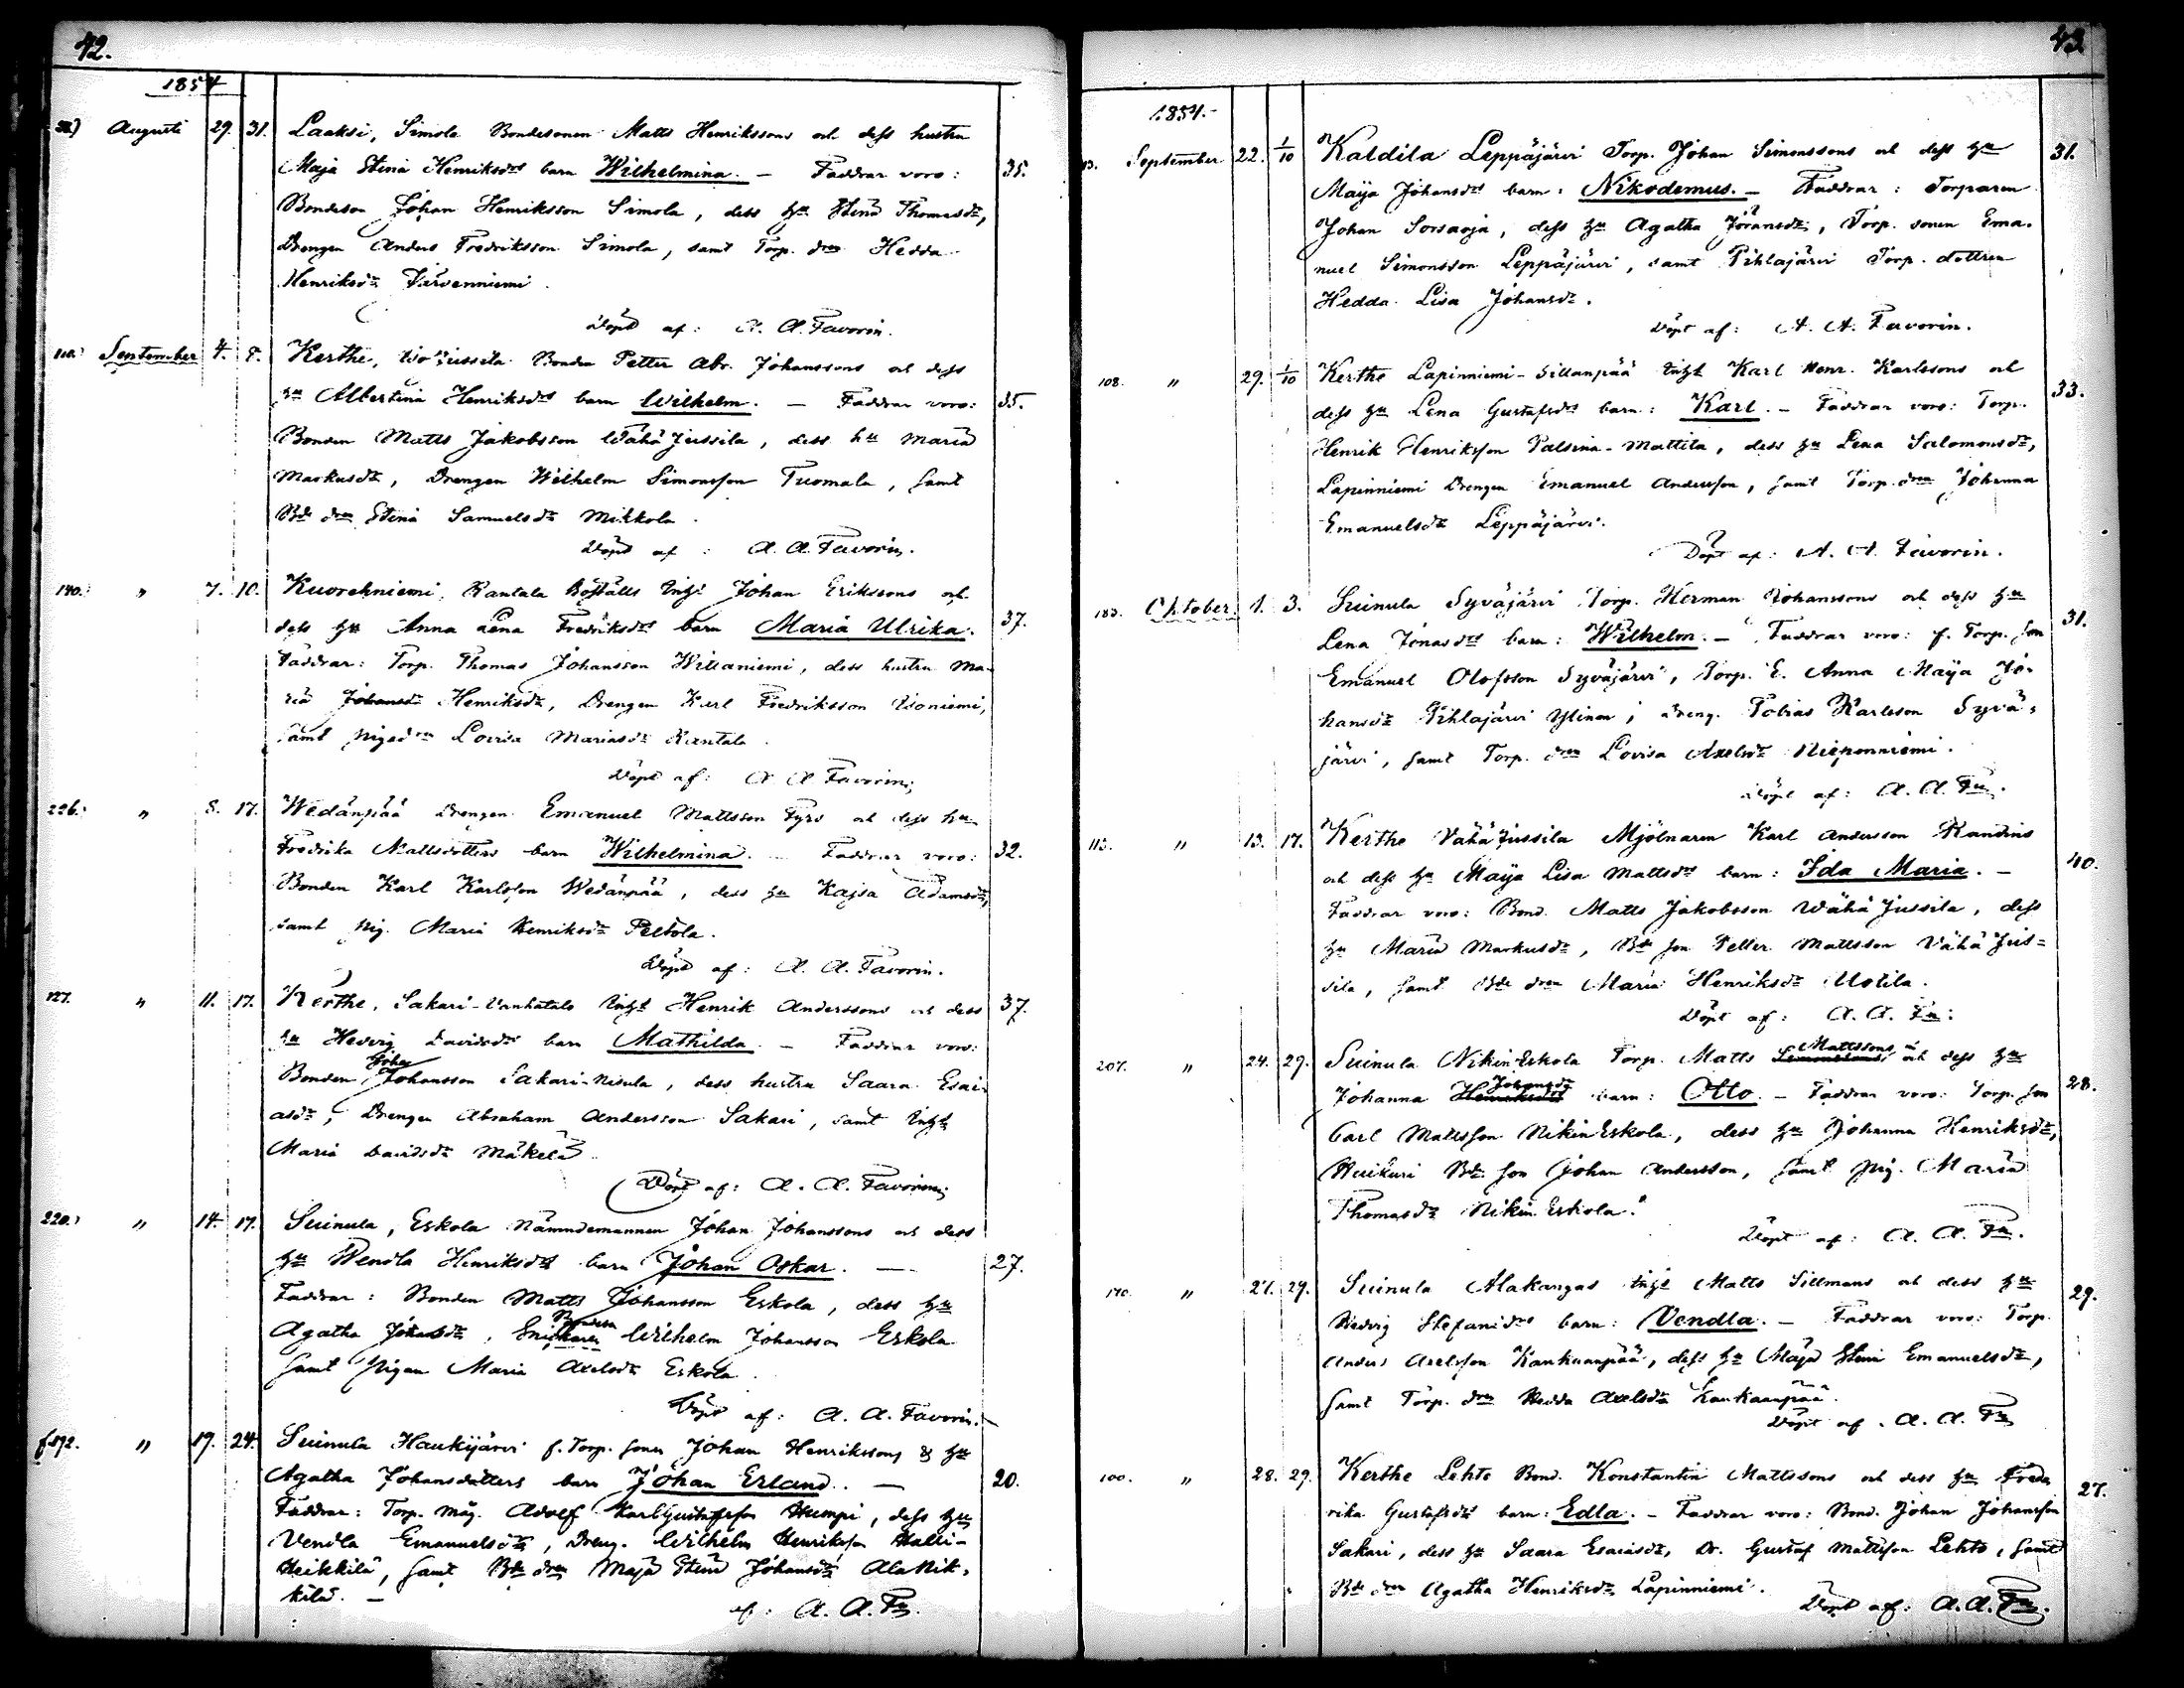 42.
1854
Augusti 29. 31. Laaksi, Simola Bondesonen Matts Henrikssons och dess hustru
Maja Stina Henriksdrs barn Wilhelmina. — Faddrar voro: 35.
Bondeson Johan Henriksson Simola, dess hu Stina Thomasdr,
Drengen Anders Fredriksson Simola, samt Torp. dren Hedda
Henriksdr Järvenniemi.
Döpt af: A. A. Favorin.
September 4. 8. Kerthe, Iso Jussila Bonden Petter Abr. Johanssons och dess
hu Albertina Henriksdrs barn Wilhelm. — Faddrar voro: 35.
Bonden Matts Jakobsson Wähä Jussila, dess hu Maria
Markusdr, Drengen Wilhelm Simonsson Tuomala, samt
Bde dren Stina Samuelsdr Mikkola.
Döpt af: A. A. Favorin.
140. " 7. 10. Kuorehniemi, Rantala Boställs Inhs Johan Erikssons och
dess hu Anna Lena Fredriksdrs barn Maria Ulrika. 37.
Faddrar: Torp. Thomas Johansson Witsaniemi, dess hustru Ma-
ria Johansdr Henriksdr, Drengen Karl Fredriksson Isoniemi,
samt pigedren Lovisa Mariasdr Rantala.
Döpt af: A. A. Favorin.
226. " 8. 17. Wedänpää Drengen Emanuel Mattsson Fyrs och dess hu
Fredrika Mattsdotters barn Wilhelmina. — Faddrar voro: 32.
Bonden Karl Karlsson Wedänpää, dess hu Kajsa Adamsdr,
samt pig. Maria Henriksdr Peltola.
Döpt af: A. A. Favorin.
127. " 11. 17. Kerthe, Sakari-Vanhatalo Inhs Henrik Anderssons och dess 37.
hu Hedvig Davidsdrs barn Mathilda. — Faddrar voro:
Johan
Bonden Johansson Sakari-Nisula, dess hustru Saara Esai-
asdr, Drengen Abraham Andersson Sakari, samt Inhs
Maria Davidsdr Mäkelä.
Döpt af: A. A. Favorin.
220. " 14. 17. Suinula, Eskola Nämndemannen Johan Johanssons och dess
hu Wendla Henriksdrs barn Johan Oskar. — 27.
Faddrar: Bonden Matts Johansson Eskola, dess hu
Agatha Johansdr, Snickaren Wilhelm Johansson Eskola
samt pigan Maria Axelsdr Eskola.
Döpt af: A. A. Favorin.
" 19. 24. Suinula Haukijärvi f. Torp. sonen Johan Henrikssons & hu
Agatha Johansdotters barn Johan Erland. — 20.
Faddrar: Torp. måg. Adolf Karl Gustafsson Humpi, dess hu
Vendla Emanuelsdr, Dreng. Wilhelm Henriksson Halli-
Heikkilä, samt Bde dren Maja Stina Johansdr Ala Nik-
kilä. —
af: A. A. Fn.
43
1854.
September 22. 1/10 Kaldila Leppäjärvi Torp. Johan Simonssons och dess hu 31.
Maija Johansdrs barn: Nikodemus. — Faddrar: Torparen
Johan Sorsaoja, dess hu Agatha Jöransdr, Torp. sonen Ema-
nuel Simonsson Leppäjärvi, samt Pihlajärvi Torp. dottren
Hedda Lisa Johansdr.
Döpt af: A. A. Favorin.
108. " 29. 1/10 Kerthe Lapinniemi-Sillanpää Inhs Karl Henr. Karlssons och
dess hu Lena Gustafsdrs barn: Karl. — Faddrar voro: Torp. 33.
Henrik Henriksson Palsina-Mattila, dess hu Lena Salomonsdr,
Lapinniemi Drengen Emanuel Andersson, samt Torp. dren Johanna
Emanuelsdr Leppäjärvi.
Döpt af: A. A. Favorin.
183. Oktober 1. 3. Suinula Syväjärvi Torp. Herman Johanssons och dess hu
Lena Jonasdrs barn: Wilhelm. — Faddrar voro: f. Torp. son 31.
Emanuel Olofsson Syväjärvi, Torp. E. Anna Maija Jo-
hansdr Pihlajärvi Ylinen, Dreng. Tobias Karlsson Syvä-
järvi, samt Torp. dren Lovisa Axelsdr Nieponniemi.
Döpt af: A. A. Fn.
113. " 13. 17. Kerthe Vähä Jussila Mjölnaren Karl Andersson Randins
och dess hu Maija Lisa Mattsdrs barn: Ida Maria. — 40.
Faddrar voro: Bond. Matts Jakobsson Wähä Jussila, dess
hu Maria Markusdr, Bde son Petter Mattsson Vähä Jus-
sila, samt Bde dren Maria Henriksdr Uotila.
Döpt af: A. A. Fn.
207. " 24. 29. Suinula Nikin Eskola Torp. Matts Simonssons Mattssons och dess hu
Johanna Henriksdrs Johansdr barn: Otto. — Faddrar voro: Torp. son 28.
Carl Mattsson Nikin Eskola, dess hu Johanna Henriksdr,
Huikuri Bde son Johan Andersson, samt pig. Maria
Thomasdr Nikin Eskola.
Döpt af: A. A. Fn.
170. " 27. 29. Suinula Alakangas Inhs Matts Sillmans och dess hu
Hedvig Stefanidrs barn: Vendla. — Faddrar voro: Torp. 29.
Anders Axelsson Kankaanpää, dess hu Maja Stina Emanuelsdr,
samt Torp. dren Hedda Axelsdr Kankaanpää.
Döpt af: A. A. Fn
100. " 28. 29. Kerthe Lehto Bond. Konstantin Mattssons och dess hu Fred-
rika Gustafsdrs barn: Edla. — Faddrar voro: Bond. Johan Johansson 27.
Sakari, dess hu Saara Esaiasdr, Dr. Gustaf Mattsson Lehto, samt
Bde dren Agatha Henriksdr Lapinniemi.
Döpt af: A. A. Fn.